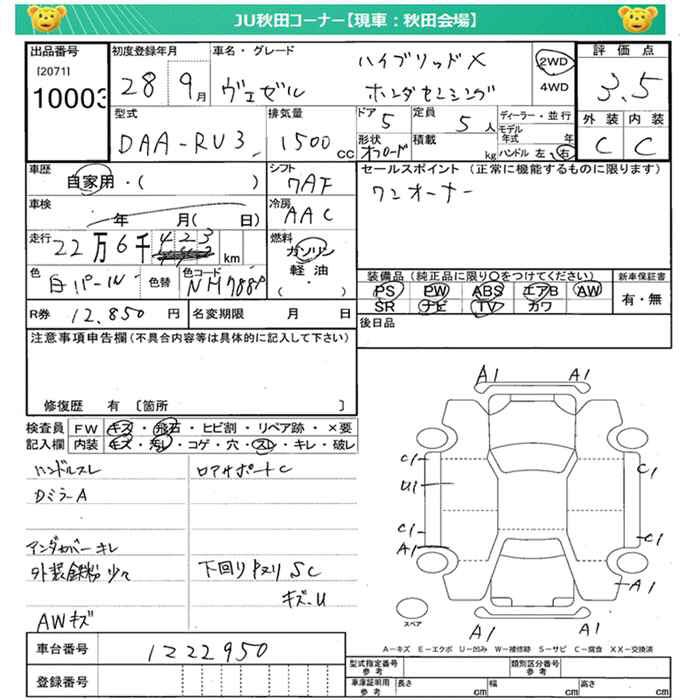 JU秋田コーナー【現車：秋田会場】
出品番号 初度登録年月 車名・グレード 評価点
[2071] 28 9月 ヴェゼル ハイブリッドX 2WD
10003 ホンダセンシング 4WD 3.5
型式 排気量 ドア 定員 ディーラー・並行 外装 内装
DAA-RU3 1500cc 5 5人 モデル年式 年 C C
形状 オフロード 積載 kg ハンドル 左、右
車歴 自家用・( ) シフト 7AF セールスポイント（正常に機能するものに限ります）
ワンオーナー
車検 年 月( 日) 冷房 AAC
走行 22万6千423km 燃料 ガソリン
軽油
( ・ )
色 白パール 色替 色コード NH788P
装備品（純正品に限り○をつけてください） 新車保証書
PS PW ABS エアB AW 有・無
SR ナビ TV カワ
R券 12,850円 名変期限 月 日
後日品
注意事項申告欄（不具合内容等は具体的に記入して下さい）
修復歴 有 〔箇所 〕
検査員 FW キズ・飛石・ヒビ割・リペア跡・×要
記入欄 内装 キズ・汚レ・コゲ・穴・スレ・キレ・破レ
ハンドルスレ ロアサポートC
DミラーA
アンダカバーキレ
外装鉄粉少々 下回りキスリSC
キズ・U
AWキズ
A1 A1
C1 C1
U1
C1 C1
A1 A1
A1 A1
スペア
A－キズ E－エクボ U－凹み W－補修跡 S－サビ C－腐食 XX－交換済
車台番号 1222950
登録番号
型式指定番号 参考 類別区分番号 参考
車庫証明用 参考 長さ cm 幅 cm 高さ cm